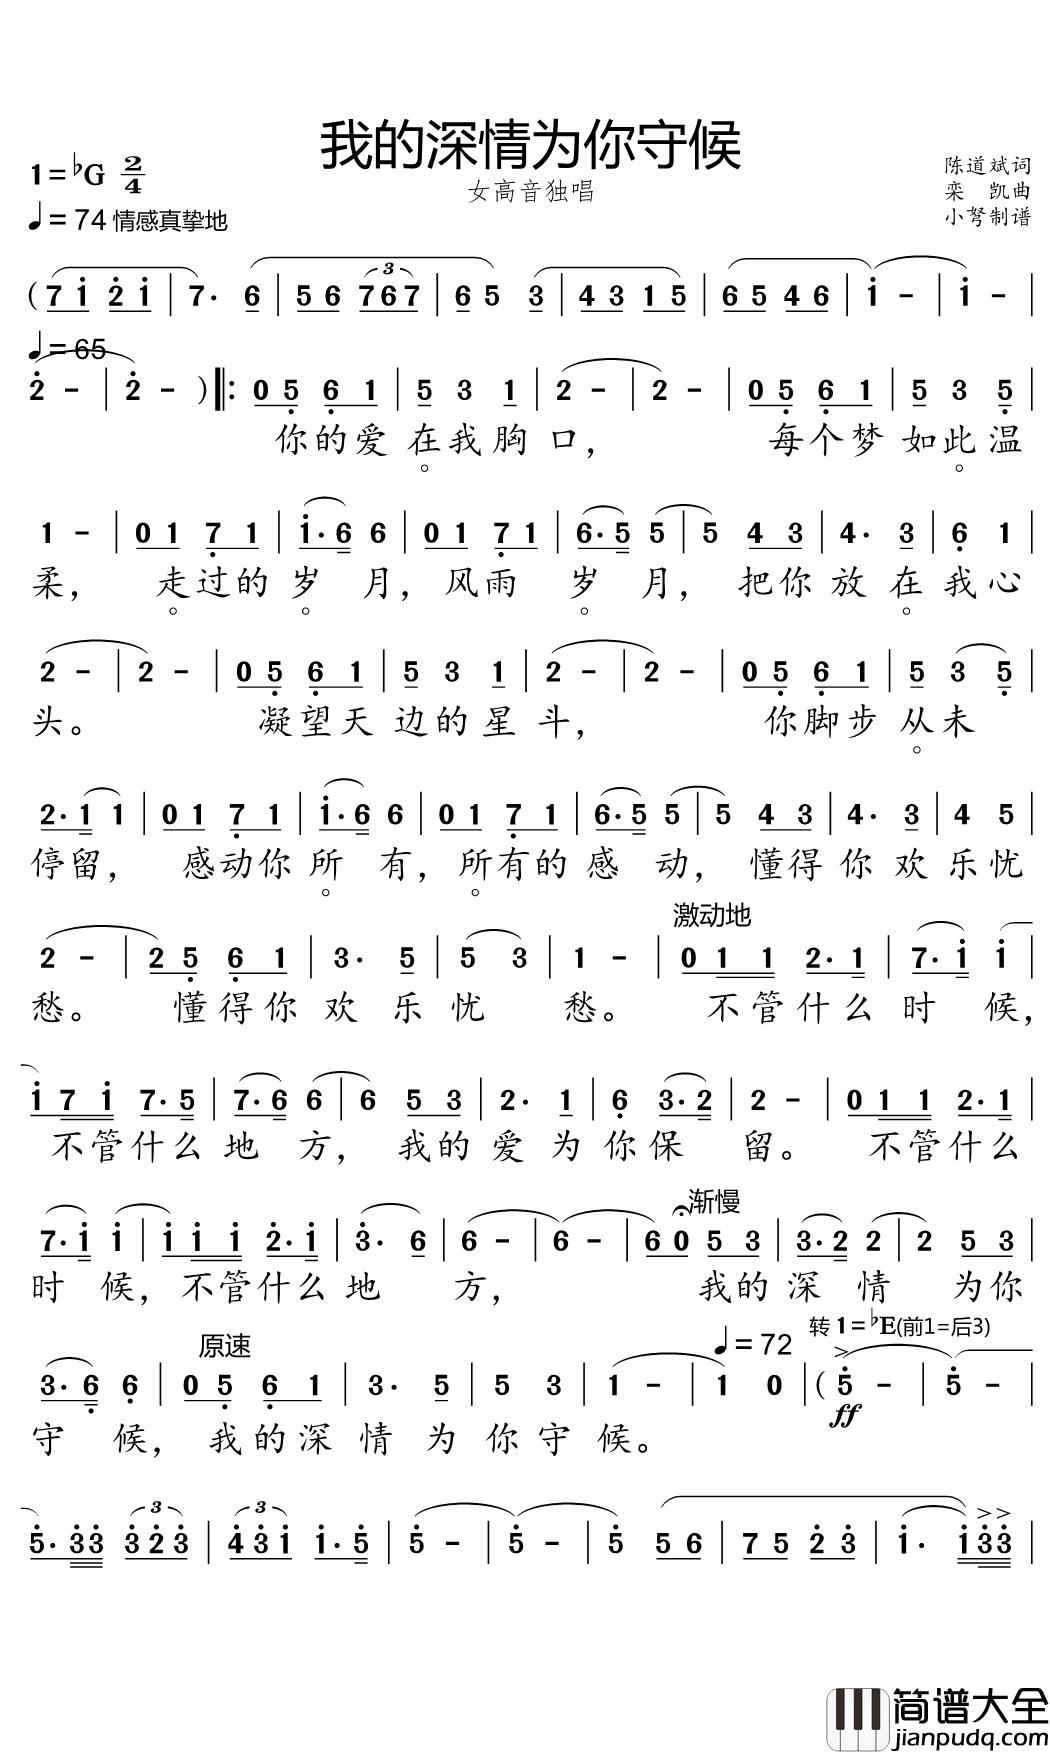 我的深情为你守候
1=♭G 2/4
女高音独唱
陈道斌词
栾 凯曲
小弩制谱
♩=74 情感真挚地
( 7 1 2 1 | 7· 6 | 5 6 7 6 7 | 6 5 3 | 4 3 1 5 | 6 5 4 6 | 1 - | 1 - |
3 3
♩=65
2 - | 2 - ) ‖: 0 5 6 1 | 5 3 1 | 2 - | 2 - | 0 5 6 1 | 5 3 5 |
你的爱 在我胸 口, 每个梦 如此温
1 - | 0 1 7 1 | 1· 6 6 | 0 1 7 1 | 6· 5 5 | 5 4 3 | 4· 3 | 6 1 |
柔, 走过的 岁 月, 风雨 岁 月, 把你 放 在 我心
2 - | 2 - | 0 5 6 1 | 5 3 1 | 2 - | 2 - | 0 5 6 1 | 5 3 5 |
头。 凝望天 边的星 斗, 你脚步 从未
2· 1 1 | 0 1 7 1 | 1· 6 6 | 0 1 7 1 | 6· 5 5 | 5 4 3 | 4· 3 | 4 5 |
停留, 感动你 所 有, 所有的 感 动, 懂得 你 欢 乐忧
激动地
2 - | 2 5 6 1 | 3· 5 | 5 3 | 1 - | 0 1 1 2· 1 | 7· 1 1 |
愁。 懂得你 欢 乐 忧 愁。 不管什么 时 候,
1 7 1 7· 5 | 7· 6 6 | 6 5 3 | 2· 1 | 6 3· 2 | 2 - | 0 1 1 2· 1 |
不管什么 地 方, 我的 爱 为 你保 留。 不管什么
渐慢
7· 1 1 | 1 1 1 2· 1 | 3· 6 | 6 - | 6 - | 6 0 5 3 | 3· 2 2 | 2 5 3 |
时 候, 不管什么 地 方, 我的 深 情 为你
原速
♩=72
转 1=♭E(前1=后3)
3· 6 6 | 0 5 6 1 | 3· 5 | 5 3 | 1 - | 1 0 | ( 5 - | 5 - |
ff
守 候, 我的深 情 为 你守 候。
3 3
5· 3 3 3 2 3 | 4 3 1 1· 5 | 5 - | 5 - | 5 5 6 | 7 5 2 3 | 1· 1 3 3 |
简谱大全
jianpudq.com